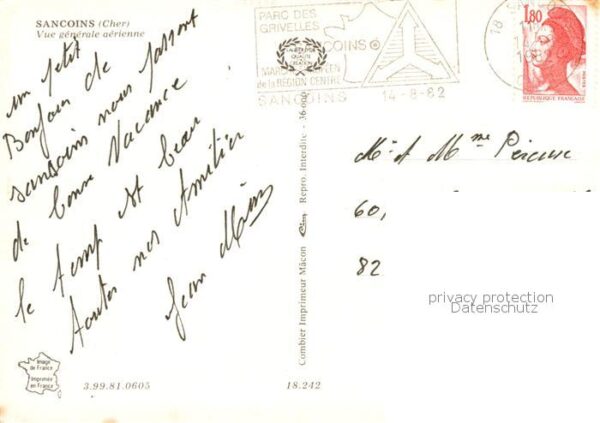 SANCOINS (Cher)
Vue générale aérienne
un petit
Bonjour de
sancoins nous passont
de bonne Vacance
le temp et beau
toutes nos Amitier
Jean
PARC DES
GRIVELLES
COINS
MARCH
de la REGION CENTRE
SANCOINS 14-8-82
18
1,80
REPUBLIQUE FRANÇAISE
Combier Imprimeur Mâcon Cim Repro. Interdite - 36 000
M. et Mme
60,
82
privacy protection
Datenschutz
Image
de France
Imprimée
en France
3.99.81.0605
18.242